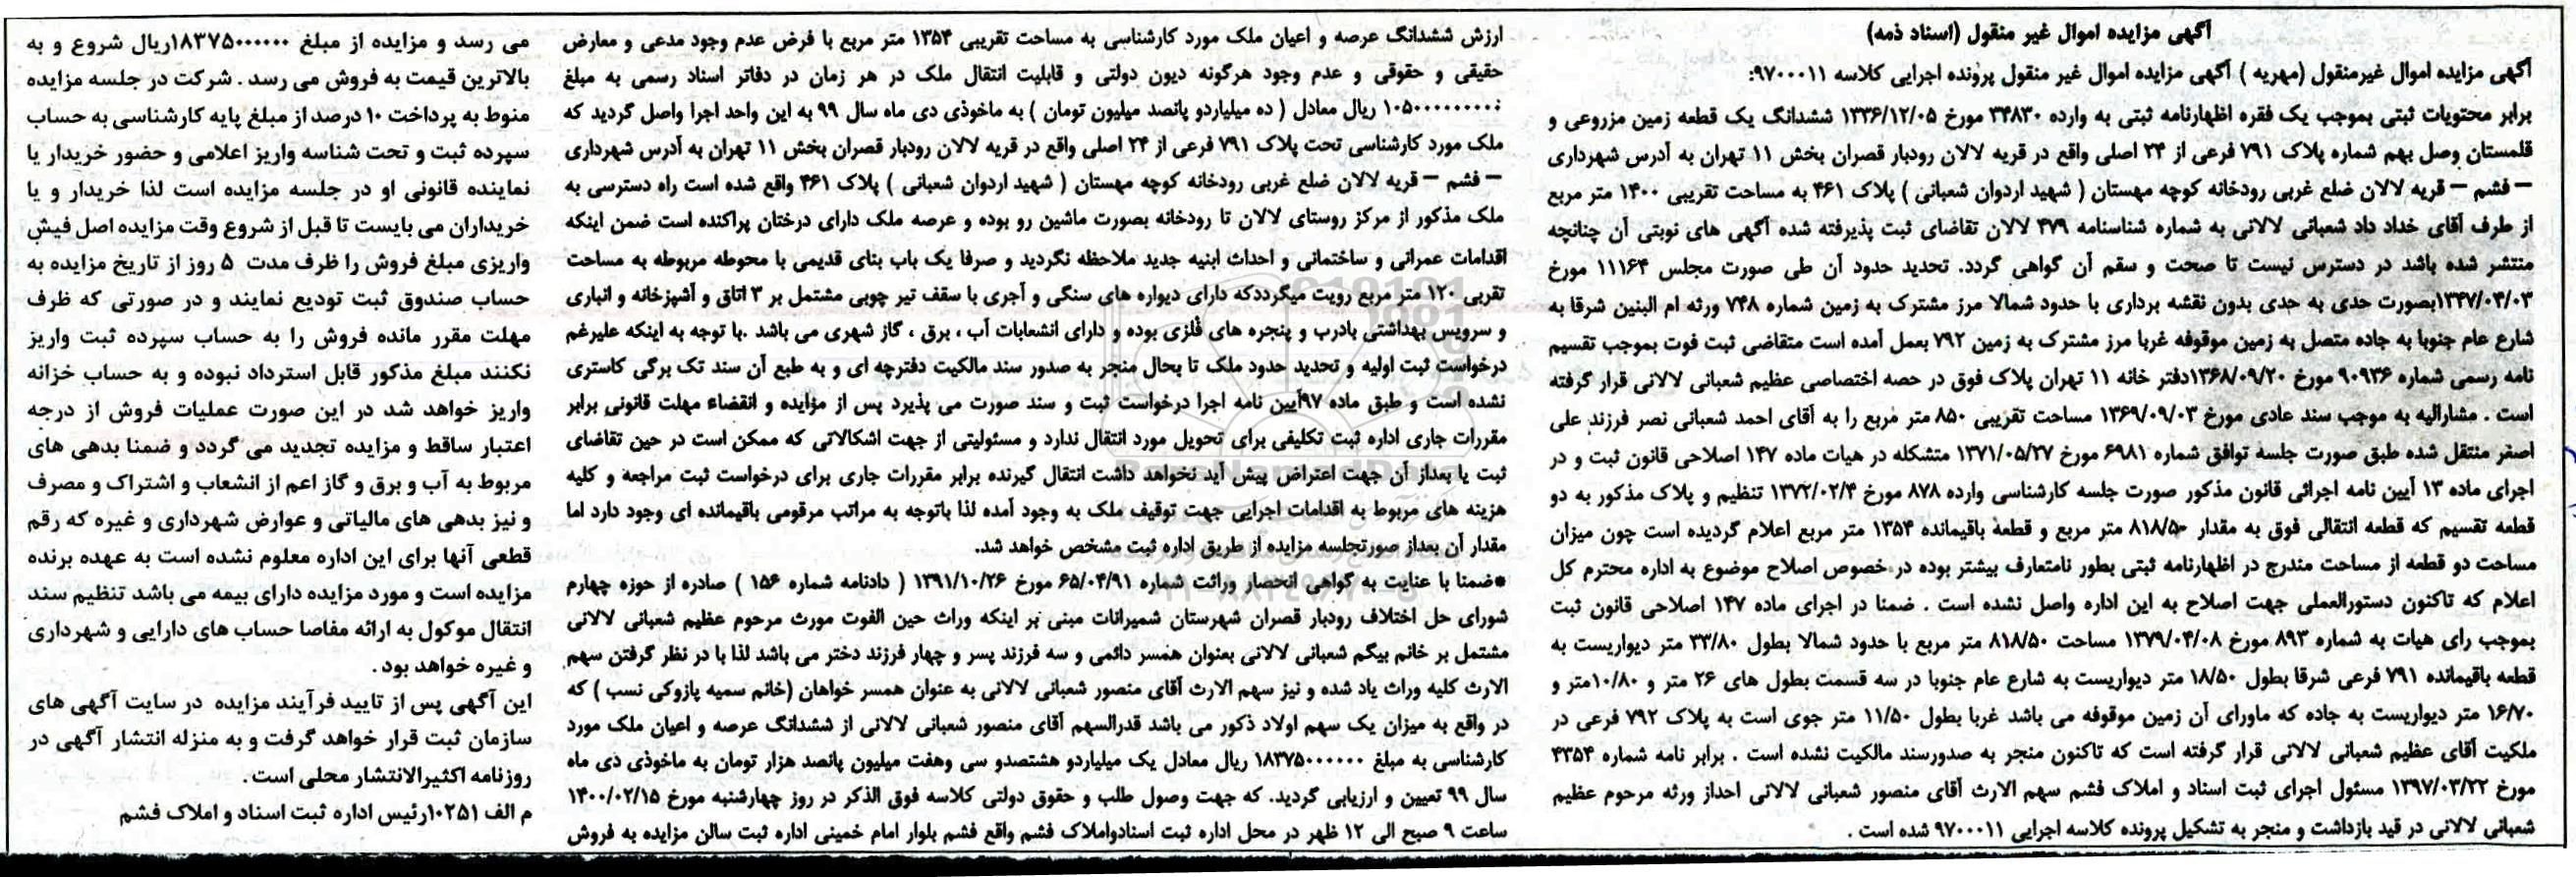 آگهی مزایده اموال غیر منقول (اسناد ذمه)
آگهی مزایده اموال غیرمنقول (مهریه ) آگهی مزایده اموال غیر منقول پرونده اجرایی کلاسه ۹۷۰۰۰۱۱:
برابر محتویات ثبتی بموجب یک فقره اظهارنامه ثبتی به وارده ۳۴۸۳۰ مورخ ۱۳۳۶/۱۲/۰۵ ششدانگ یک قطعه زمین مزروعی و
قلمستان وصل بهم شماره پلاک ۷۹۱ فرعی از ۲۴ اصلی واقع در قریه لالان رودبار قصران بخش ۱۱ تهران به آدرس شهرداری
– فشم – قریه لالان ضلع غربی رودخانه کوچه مهستان ( شهید اردوان شعبانی ) پلاک ۴۶۱ به مساحت تقریبی ۱۴۰۰ متر مربع
از طرف آقای خداد داد شعبانی لالانی به شماره شناسنامه ۴۷۹ لالان تقاضای ثبت پذیرفته شده آگهی های نوبتی آن چنانچه
منتشر شده باشد در دسترس نیست تا صحت و سقم آن گواهی گردد. تحدید حدود آن طی صورت مجلس ۱۱۱۶۴ مورخ
۱۳۴۷/۰۴/۰۳بصورت حدی به حدی بدون نقشه برداری با حدود شمالا مرز مشترک به زمین شماره ۷۴۸ ورثه ام البنین شرقا به
شارع عام جنوبا به جاده متصل به زمین موقوفه غربا مرز مشترک به زمین ۷۹۲ بعمل آمده است متقاضی ثبت فوت بموجب تقسیم
نامه رسمی شماره ۹۰۹۳۶ مورخ ۱۳۶۸/۰۹/۲۰دفتر خانه ۱۱ تهران پلاک فوق در حصه اختصاصی عظیم شعبانی لالانی قرار گرفته
است . مشارالیه به موجب سند عادی مورخ ۱۳۶۹/۰۹/۰۳ مساحت تقریبی ۸۵۰ متر مربع را به آقای احمد شعبانی نصر فرزند علی
اصغر منتقل شده طبق صورت جلسه توافق شماره ۶۹۸۱ مورخ ۱۳۷۱/۰۵/۲۷ متشکله در هیات ماده ۱۴۷ اصلاحی قانون ثبت و در
اجرای ماده ۱۳ آیین نامه اجرائی قانون مذکور صورت جلسه کارشناسی وارده ۸۷۸ مورخ ۱۳۷۲/۰۲/۴ تنظیم و پلاک مذکور به دو
قطعه تقسیم که قطعه انتقالی فوق به مقدار ۸۱۸/۵۰ متر مربع و قطعه باقیمانده ۱۳۵۴ متر مربع اعلام گردیده است چون میزان
مساحت دو قطعه از مساحت مندرج در اظهارنامه ثبتی بطور نامتعارف بیشتر بوده در خصوص اصلاح موضوع به اداره محترم کل
اعلام که تاکنون دستورالعملی جهت اصلاح به این اداره واصل نشده است . ضمنا در اجرای ماده ۱۴۷ اصلاحی قانون ثبت
بموجب رای هیات به شماره ۸۹۳ مورخ ۱۳۷۹/۰۴/۰۸ مساحت ۸۱۸/۵۰ متر مربع با حدود شمالا بطول ۳۳/۸۰ متر دیواریست به
قطعه باقیمانده ۷۹۱ فرعی شرقا بطول ۱۸/۵۰ متر دیواریست به شارع عام جنوبا در سه قسمت بطول های ۲۶ متر و ۱۰/۸۰متر و
۱۶/۷۰ متر دیواریست به جاده که ماورای آن زمین موقوفه می باشد غربا بطول ۱۱/۵۰ متر جوی است به پلاک ۷۹۲ فرعی در
ملکیت آقای عظیم شعبانی لالانی قرار گرفته است که تاکنون منجر به صدورسند مالکیت نشده است . برابر نامه شماره ۴۳۵۴
مورخ ۱۳۹۷/۰۳/۲۲ مسئول اجرای ثبت اسناد و املاک فشم سهم الارث آقای منصور شعبانی لالانی احداز ورثه مرحوم عظیم
شعبانی لالانی در قید بازداشت و منجر به تشکیل پرونده کلاسه اجرایی ۹۷۰۰۰۱۱ شده است .
ارزش ششدانگ عرصه و اعیان ملک مورد کارشناسی به مساحت تقریبی ۱۳۵۴ متر مربع با فرض عدم وجود مدعی و معارض
حقیقی و حقوقی و عدم وجود هرگونه دیون دولتی و قابلیت انتقال ملک در هر زمان در دفاتر اسناد رسمی به مبلغ
۱۰۵۰۰۰۰۰۰۰۰۰ ریال معادل ( ده میلیاردو پانصد میلیون تومان ) به ماخوذی دی ماه سال ۹۹ به این واحد اجرا واصل گردید که
ملک مورد کارشناسی تحت پلاک ۷۹۱ فرعی از ۲۴ اصلی واقع در قریه لالان رودبار قصران بخش ۱۱ تهران به آدرس شهرداری
– فشم – قریه لالان ضلع غربی رودخانه کوچه مهستان ( شهید اردوان شعبانی ) پلاک ۴۶۱ واقع شده است راه دسترسی به
ملک مذکور از مرکز روستای لالان تا رودخانه بصورت ماشین رو بوده و عرصه ملک دارای درختان پراکنده است ضمن اینکه
اقدامات عمرانی و ساختمانی و احداث ابنیه جدید ملاحظه نگردید و صرفا یک باب بنای قدیمی با محوطه مربوطه به مساحت
تقریبی ۱۲۰ متر مربع رویت میگرددکه دارای دیواره های سنگی و آجری با سقف تیر چوبی مشتمل بر ۳ اتاق و آشپزخانه و انباری
و سرویس بهداشتی بادرب و پنجره های فلزی بوده و دارای انشعابات آب ، برق ، گاز شهری می باشد .با توجه به اینکه علیرغم
درخواست ثبت اولیه و تحدید حدود ملک تا بحال منجر به صدور سند مالکیت دفترچه ای و به طبع آن سند تک برگی کاستری
نشده است و طبق ماده ۹۷آیین نامه اجرا درخواست ثبت و سند صورت می پذیرد پس از مزایده و انقضاء مهلت قانونی برابر
مقررات جاری اداره ثبت تکلیفی برای تحویل مورد انتقال ندارد و مسئولیتی از جهت اشکالاتی که ممکن است در حین تقاضای
ثبت یا بعداز آن جهت اعتراض پیش آید نخواهد داشت انتقال گیرنده برابر مقررات جاری برای درخواست ثبت مراجعه و کلیه
هزینه های مربوط به اقدامات اجرایی جهت توقیف ملک به وجود آمده لذا باتوجه به مراتب مرقومی باقیمانده ای وجود دارد اما
مقدار آن بعداز صورتجلسه مزایده از طریق اداره ثبت مشخص خواهد شد.
*ضمنا با عنایت به گواهی انحصار وراثت شماره ۶۵/۰۴/۹۱ مورخ ۱۳۹۱/۱۰/۲۶ ( دادنامه شماره ۱۵۶ ) صادره از حوزه چهارم
شورای حل اختلاف رودبار قصران شهرستان شمیرانات مبنی بر اینکه وراث حین الفوت مورث مرحوم عظیم شعبانی لالانی
مشتمل بر خانم بیگم شعبانی لالانی بعنوان همسر دائمی و سه فرزند پسر و چهار فرزند دختر می باشد لذا با در نظر گرفتن سهم
الارث کلیه وراث یاد شده و نیز سهم الارث آقای منصور شعبانی لالانی به عنوان همسر خواهان (خانم سمیه پازوکی نسب ) که
در واقع به میزان یک سهم اولاد ذکور می باشد قدرالسهم آقای منصور شعبانی لالانی از ششدانگ عرصه و اعیان ملک مورد
کارشناسی به مبلغ ۱۸۳۷۵۰۰۰۰۰۰ ریال معادل یک میلیاردو هشتصدو سی وهفت میلیون پانصد هزار تومان به ماخوذی دی ماه
سال ۹۹ تعیین و ارزیابی گردید. که جهت وصول طلب و حقوق دولتی کلاسه فوق الذکر در روز چهارشنبه مورخ ۱۴۰۰/۰۲/۱۵
ساعت ۹ صبح الی ۱۲ ظهر در محل اداره ثبت اسنادواملاک فشم واقع فشم بلوار امام خمینی اداره ثبت سالن مزایده به فروش
می رسد و مزایده از مبلغ ۱۸۳۷۵۰۰۰۰۰۰ریال شروع و به
بالاترین قیمت به فروش می رسد . شرکت در جلسه مزایده
منوط به پرداخت ۱۰ درصد از مبلغ پایه کارشناسی به حساب
سپرده ثبت و تحت شناسه واریز اعلامی و حضور خریدار یا
نماینده قانونی او در جلسه مزایده است لذا خریدار و یا
خریداران می بایست تا قبل از شروع وقت مزایده اصل فیش
واریزی مبلغ فروش را ظرف مدت ۵ روز از تاریخ مزایده به
حساب صندوق ثبت تودیع نمایند و در صورتی که ظرف
مهلت مقرر مانده فروش را به حساب سپرده ثبت واریز
نکنند مبلغ مذکور قابل استرداد نبوده و به حساب خزانه
واریز خواهد شد در این صورت عملیات فروش از درجه
اعتبار ساقط و مزایده تجدید می گردد و ضمنا بدهی های
مربوط به آب و برق و گاز اعم از انشعاب و اشتراک و مصرف
و نیز بدهی های مالیاتی و عوارض شهرداری و غیره که رقم
قطعی آنها برای این اداره معلوم نشده است به عهده برنده
مزایده است و مورد مزایده دارای بیمه می باشد تنظیم سند
انتقال موکول به ارائه مفاصا حساب های دارایی و شهرداری
و غیره خواهد بود .
این آگهی پس از تایید فرآیند مزایده در سایت آگهی های
سازمان ثبت قرار خواهد گرفت و به منزله انتشار آگهی در
روزنامه اکثیرالانتشار محلی است .
م الف ۱۰۲۵۱رئیس اداره ثبت اسناد و املاک فشم